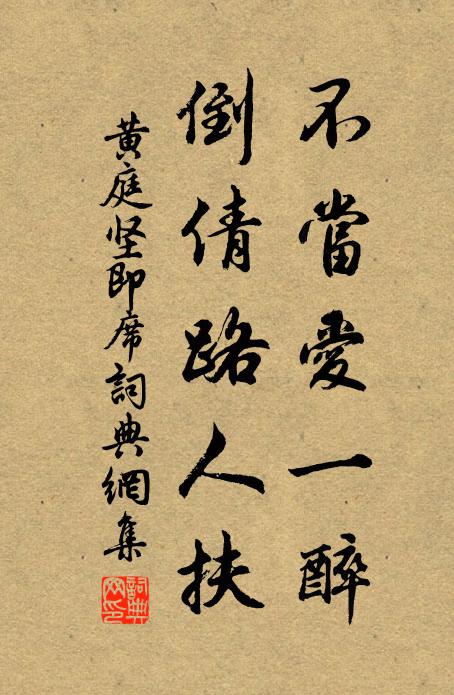 不當愛一醉
倒倩路人扶
黄庭坚即席詞典網集
詞典网印